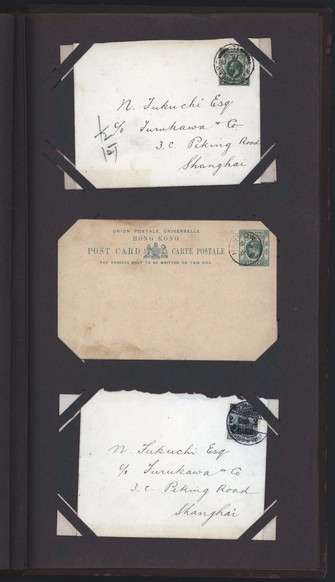 N. Fukuchi Esq
c/o Furukawa & Co
3. C. Peking Road
Shanghai
UNION POSTALE UNIVERSELLE
HONG KONG
POST CARD CARTE POSTALE
THE ADDRESS ONLY TO BE WRITTEN ON THIS SIDE.
N. Fukuchi Esq
c/o Furukawa & Co
3. C Peking Road
Shanghai